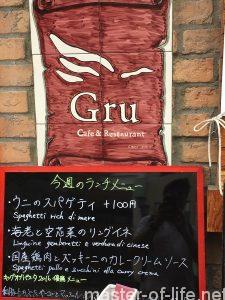 Gru
Cafe & Restaurant
今週のランチメニュー
・ウニのスパゲティ +100円
Spaghetti rich di mare
・海老と空芯菜のリングイネ
Linguine gamberetti e verdura di cinese
・国産鶏肉とズッキーニのカレークリームソース
Spaghetti pollo e zucchini alla curry crema
master-of-life.net